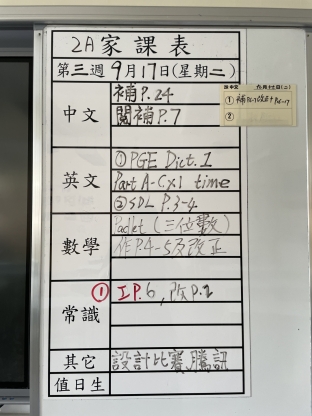 2A家課表
第三週9月17日(星期二)
中文
補P.24
閱補P.7
英文
①PGE Dict.1
Part A-C×1 time
②SDL P.3-4
數學
Packet (三位數)
作P.4-5及改正
常識
①工P.6, 改P.2
其它
設計比賽,騰訊
值日生
①
②